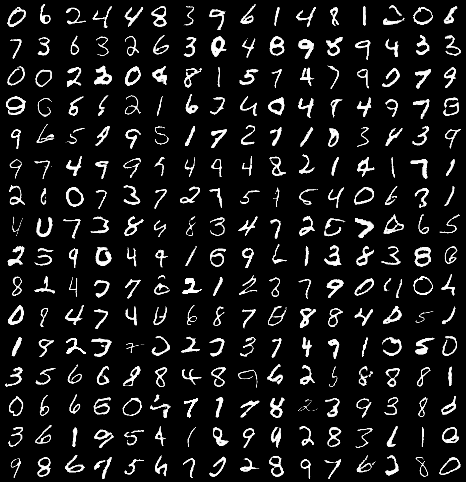 0 6 2 4 4 8 3 9 6 1 4 8 1 2 0 6
7 3 6 3 2 6 3 0 4 8 9 8 9 4 3 3
0 0 2 2 0 8 8 1 5 7 4 7 9 0 7 9
9 6 5 5 2 1 6 2 4 0 4 9 4 9 7 8
9 6 5 9 9 5 1 7 2 7 1 0 3 4 3 9
9 7 4 9 9 9 4 9 4 8 2 1 4 1 7 1
2 1 0 7 3 7 2 7 5 1 5 4 0 6 3 1
4 0 7 3 8 9 8 3 4 7 2 0 7 0 6 5
2 5 9 0 4 4 1 6 9 6 1 3 8 3 8 6
8 2 4 7 7 6 2 1 2 8 7 9 0 4 0 4
0 9 4 7 4 0 6 8 7 0 8 8 4 0 5 1
1 9 2 3 7 0 2 3 3 7 4 9 1 0 5 0
3 5 6 6 8 8 4 8 9 6 2 5 8 8 8 1
0 6 6 6 0 4 7 1 7 8 2 3 9 3 8 0
3 6 1 9 5 4 1 8 9 9 2 8 3 1 1 0
9 8 6 9 5 6 7 7 2 8 9 7 6 2 8 0